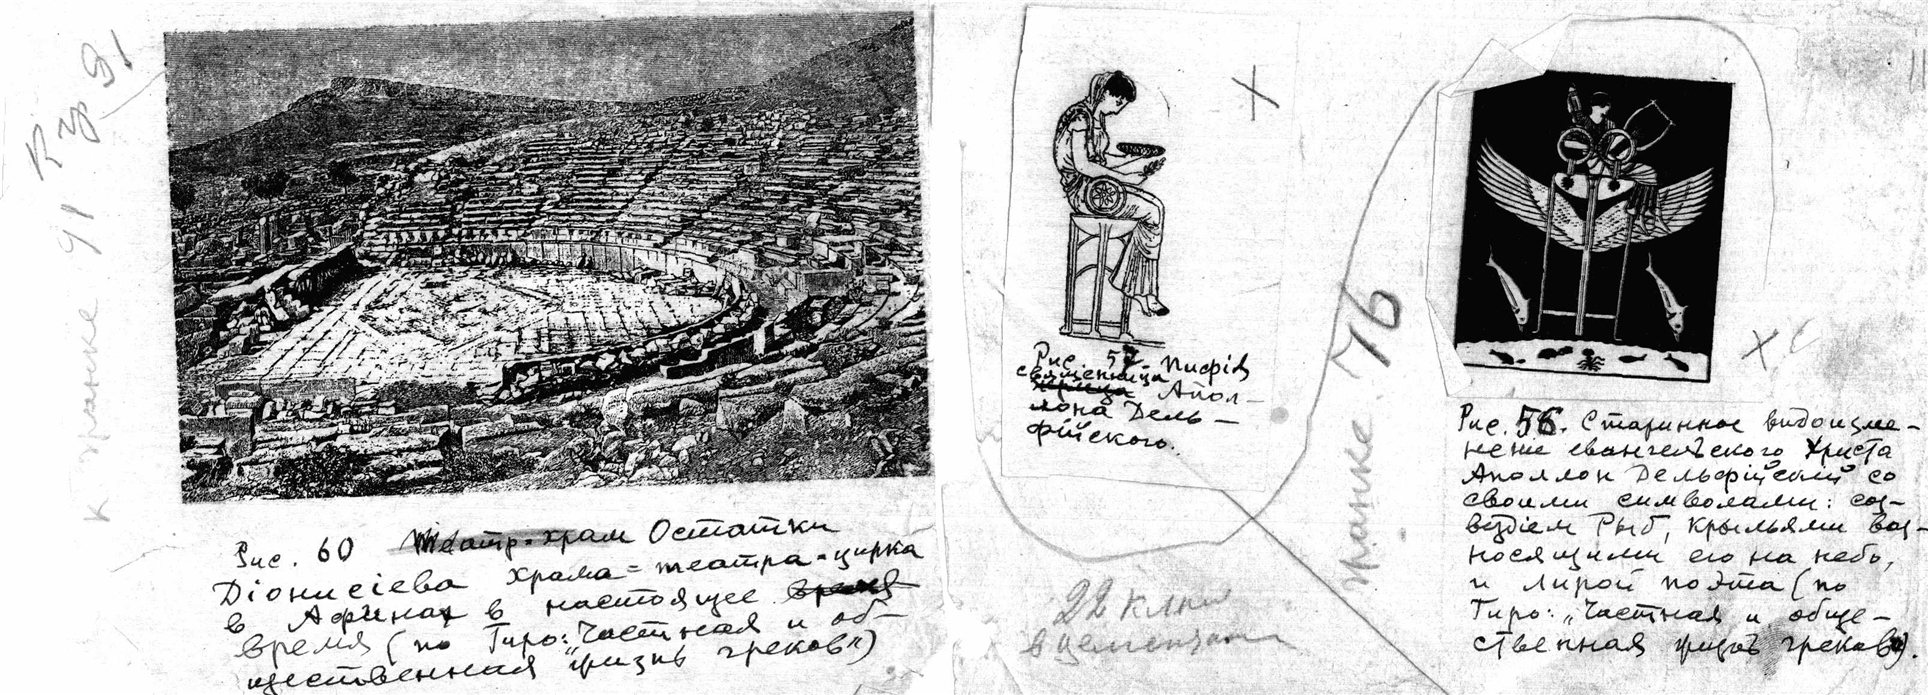 К гр 91
к гранке 91
Рис. 60 Театр-храм Остатки
Діонисіева храма-театра-цирка
в Афинах в настоящее время
время (по Гиро: "Частная и об-
щественная жизнь греков")
Х
Рис. 57. Пифія
священница
жрица Апол-
лона Дель-
фійского.
гранке 76
22 клише
Х
Рис. 56. Старинное видоизме-
неніе евангельского Христа
Аполлон Дельфійскій со
своими символами: соз-
вѣздіем Рыб, крыльями воз-
носящими его на небо,
и лирой поэта (по
Гиро: "Частная и обще-
ственная жизнь греков").